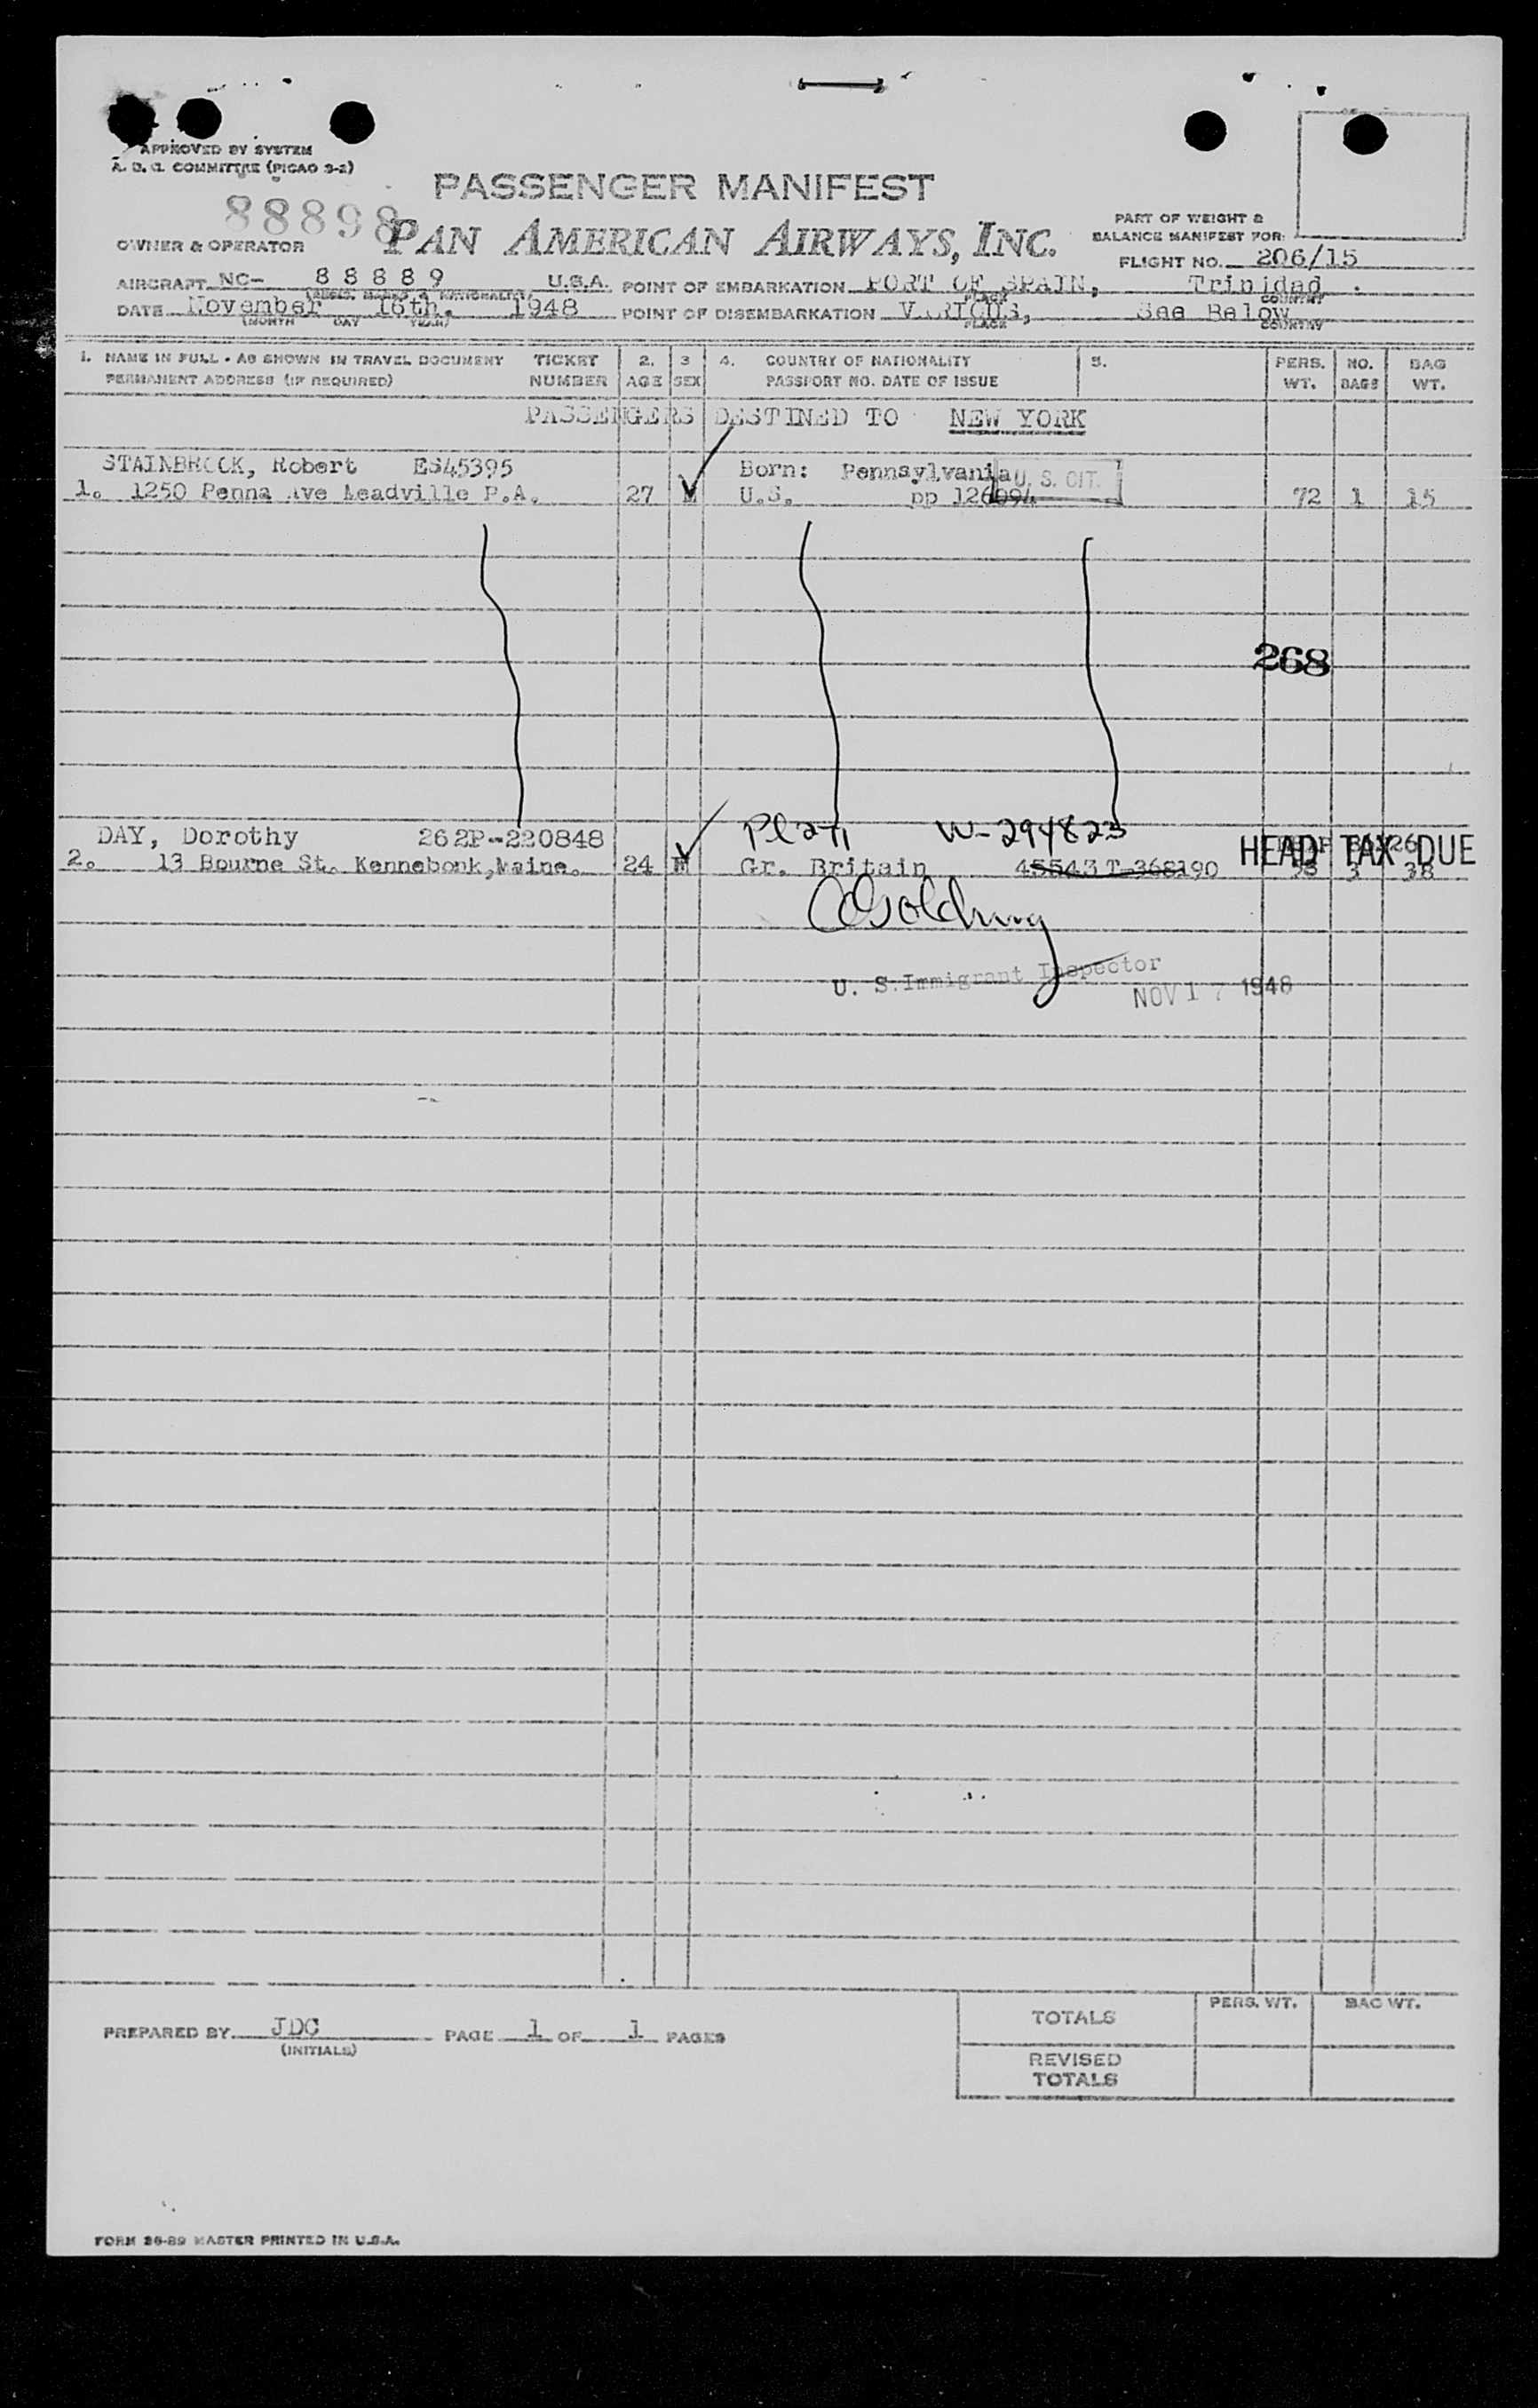 APPROVED BY SYSTEM
A. D. G. COMMITTEE (PICAO 3-2)
PASSENGER MANIFEST
88898
PAN AMERICAN AIRWAYS, INC.
PART OF WEIGHT &
BALANCE MANIFEST FOR:
OWNER & OPERATOR
FLIGHT NO. 206/15
AIRCRAFT NC- 88889 U.S.A. POINT OF EMBARKATION PORT OF SPAIN, Trinidad.
(REGIS. MARKS & NATIONALITY) PLACE COUNTRY
DATE November 16th. 1948 POINT OF DISEMBARKATION VARIOUS, See Below
(MONTH DAY YEAR) PLACE COUNTRY
1. NAME IN FULL - AS SHOWN IN TRAVEL DOCUMENT TICKET 2. 3 4. COUNTRY OF NATIONALITY 5. PERS. NO. BAG
PERMANENT ADDRESS (IF REQUIRED) NUMBER AGE SEX PASSPORT NO. DATE OF ISSUE WT. BAGS WT.
PASSENGERS DESTINED TO NEW YORK
STAINBROOK, Robert ES45395 Born: Pennsylvania U. S. CIT.
1. 1250 Penna Ave Meadville P.A. 27 M U.S. pp 126094 72 1 15
268
DAY, Dorothy 262P-220848 Pl 271 W-294823 HEAD TAX DUE
2. 13 Bourne St. Kennebonk, Maine. 24 Gr. Britain 45543 T-368190 3 38
Golding
U. S. Immigrant Inspector
NOV 17 1948
PREPARED BY JDC PAGE 1 OF 1 PAGES
(INITIALS)
TOTALS PERS. WT. BAG WT.
REVISED
TOTALS
FORM 26-89 MASTER PRINTED IN U.S.A.